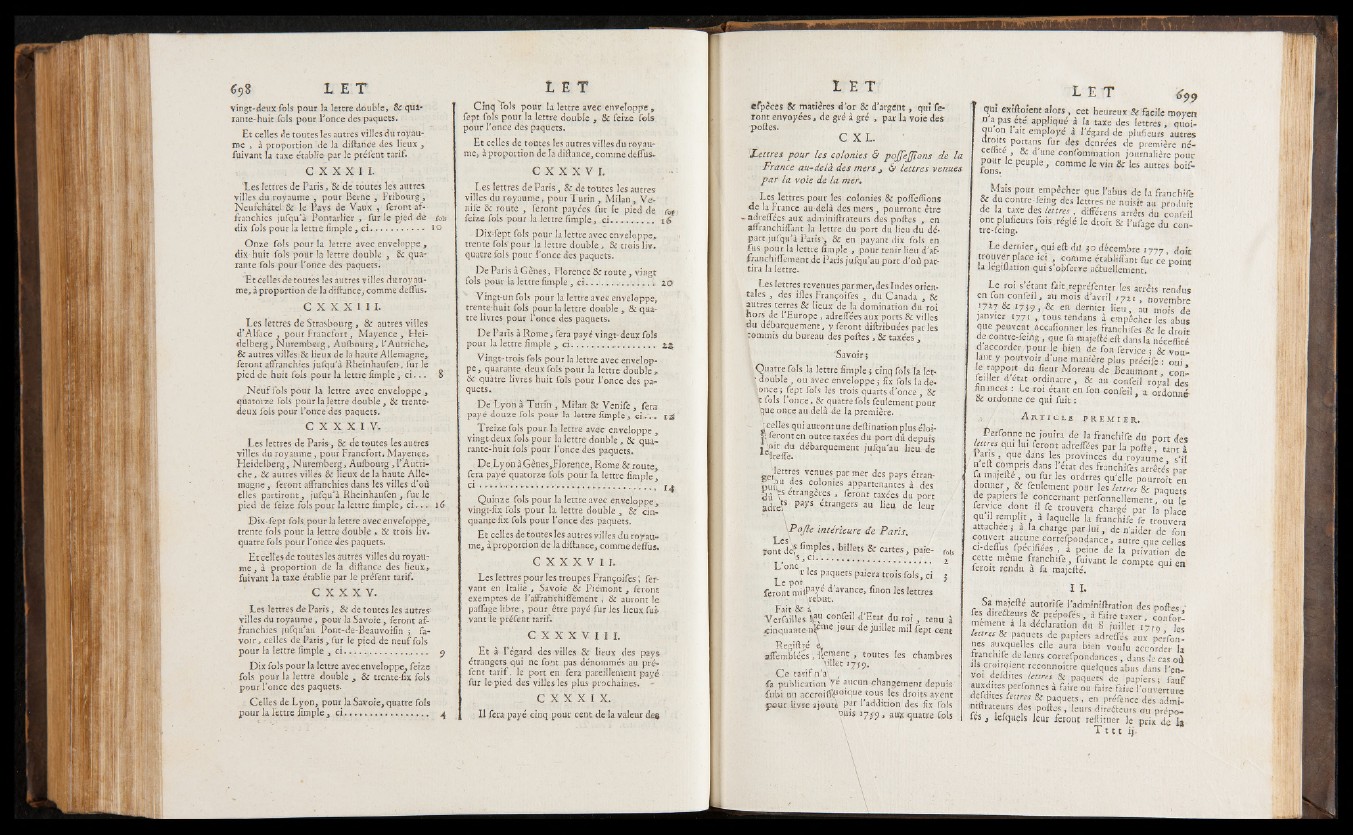 698 LET
vingt-deux sols pour la lettre double, & qua-
rante-huit sols pour l'once des paquets.
Et celles de toutes les autres villes du royau-
me , à proportion de la distance des lieux ,
suivant la taxe établie par le présent tarif.
CXXXII.
Les lettres de Paris, & de toutes les autres
villes du royaume , pour Berne , Fribourg,
Neufchâtel & le Pays de Vaux , seront af-
franchies jusqu'à Pontarlier , sur le pied de sols
dix sols pour la lettre simple, ci.......... 10
Onze sols pour la lettre avec enveloppe ,
dix huit sols pour la lettre double , & qua-
rante sols pour l'once des paquets.
Et celles de toutes les autres villes du royau-
me, à proportion de la distance, comme dessus.
CXXXIII.
Les lettres de Strasbourg , & autres villes
d'Alsace , pour Francfort , Mayence , Hei-
delberg, Nuremberg, Ausbourg, l'Autriche,
& autres villes & lieux de la haute Allemagne,
seront affranchies jusqu'à Rheinhausen, sur le
pied de huit sols pour la lettre simple, ci... 8
Neuf sols pour la lettre avec enveloppe ,
quatorze sols pour la lettre double , & trente-
deux sols pour l'once des paquets.
CXXXIV.
Les lettres de Paris, & de toutes les autres
villes du royaume, pour Francfort, Mayence,
Heidelberg, Nuremberg, Ausbourg, l'Autri-
che, & autres villes & lieux de la haute Alle-
magne, seront affranchies dans les villes d'où
elles partiront, jusqu'à Rheinhausen , sur le
pied de seize sols pour la lettre simple, ci... 16
Dix-sept sols pour la lettre avec enveloppe,
trente sols pour la lettre double , & trois liv.
quatre sols pour l'once des paquets.
Et celles de toutes les autres villes du royau-
me , à proportion de la distance des lieux,
suivant la taxe établie par le présent tarif.
CXXXV.
Les lettres de Paris, & de toutes les autres
villes du royaume , pour la Savoie , seront af-
franchies jusqu'au Pont-de-Beauvoisin ; sa-
voir, celles de Paris , sur le pied de neuf sols
pour la lettre simple , ci................ 9
Dix sols pour la lettre avec enveloppe, seize
sols pour la lettre double , & trente-six sols
pour l'once des paquets.
Celles de Lyon, pour la Savoie, quatre sols
pour la lettre simple, ci................ 4
LET
Cinq sols pour la lettre avec enveloppe ,
sept sols pour la lettre double , & seize sols
pour l'once des paquets.
Et celles de toutes les autres villes du royau-
me, à proportion de la distance, comme dessus.
CXXXVI.
Les lettres de Paris, & de toutes les autres
villes du royaume, pour Turin, Milan, Ve-
nise & route , seront payées sur le pied de sols
seize sols pour la lettre simple, ci......... 16
Dix-sept sols pour la lettre avec enveloppe,
trente sols pour la lettre double , & trois liv.
quatre sols pour l'once des paquets.
De Paris à Gênes, Florence & route, vingt
sols pour la lettre simple, ci............. 20
Vingt-un sols pour la lettre avec enveloppe,
trente-huit sols pour la lettre double , & qua-
tre livres pour l'once des paquets.
De Paris à Rome, sera payé vingt-deux sols
pour la lettre simple , ci................ 22
Vingt-trois sols pour la lettre avec envelop-
pe, quarante deux sols pour la lettre double,
& quatre livres huit sols pour l'once des pa-
quets.
De Lyon à Turin, Milan & Venise , sera
payé douze sols pour la lettre simple, ci... 12
Treize sols pour la lettre avec enveloppe,
vingt-deux sols pour la lettre double, & qua-
rante-huit sols pour l'once des paquets.
De Lyon à Gênes, Florence, Rome & route,
sera payé quatorze sols pour la lettre simple,
ci .................................. 14
Quinze sols pour la lettre avec enveloppe,
vingt-six sols pour la lettre double , & cin-
quante six sols pour l'once des paquets.
Et celles de toutes les autres villes du royau-
me, à proportion de la distance, comme dessus.
CXXXVII.
Les lettres pour les troupes Françoises ; ser-
vant en Italie , Savoie & Piémont , seront
exemptes de l'affranchissement , & auront le
passage libre, pour être payé sur les lieux sui-
vant le présent tarif.
CXXXVIII.
Et à l'égard des villes & lieux des pays
étrangers qui ne sont pas dénommés au pré-
sent tarif, le port en sera pareillement payé
sur le pied des villes les plus prochaines.
CXXXIX.
Il sera payé cinq pour cent de la valeur des
LET
espèces & matières d'or & d'argent , qui se-
ront envoyées, de gré à gré , par la voie des
postes.
CXL.
Lettres pour les colonies & possessions de la
France au-delà des mers, & lettres venues
par la voie de la mer.
Les lettres pour les colonies & possessions
de la France au-delà des mers , pourront être
adressées aux administrateurs des postes , en
affranchissant la lettre du port du lieu du dé-
part jusqu'à Paris, & en payant dix sols en
sus pour la lettre simple , pour tenir lieu d'af-
franchissement de Paris jusqu'au port d'où par-
tira la lettre.
Les lettres revenues par mer, des Indes orien-
tales , des isles Françoises , du Canada , &
autres terres & lieux de la domination du roi
hors de l'Europe , adressées aux ports & villes
du débarquement, y seront distribuées par les
commis du bureau des postes , & taxées ,
Savoir ;
Quatre sols la lettre simple ; cinq sols la let-
double , ou avec enveloppe ; six sols la de-
once ; sept sols les trois quarts d'once , &
t sols l'once, & quatre sols seulement pour
que once au delà de la première.
celles qui auront une destination plus éloi-
seront en outre taxées du port dû depuis
oit du débarquement jusqu'au lieu de
dresse.
lettres venues par mer des pays étran-
ou des colonies appartenantes à des
es étrangères , seront taxées du port
ts pays étrangers au lieu de leur
adre
Poste intérieure de Paris.
Les
simples, billets & cartes, paie- sols
ront de
s, ci........................ 2
L'onc
r les paquets paiera trois sols, ci 3
Le por
payé d'avance, sinon les lettres
seront mi
rebut.
Fait &
au conseil d'Etat du roi , tenu à
Versailles
ème jour de juillet mil sept cent
cinquante-ne
Registré
ement , toutes les chambres
assemblées,
illet 1759.
Ce tarif n'a
é aucun changement depuis
sa publication
quoique tous les droits ayent
subi un accroiss
par l'addition des six sols
pour livre ajouté
puis 1759, aux quatre sols
LET 699
qui existoient alors, cet heureux & facile moyen
n'a pas été appliqué à la taxe des lettres, quoi-
qu'on l'ait employé à l'égard de plusieurs autres
droits portans sur des denrées de première né-
cessité , & d'une consommation journalière pour
pour le peuple , comme le vin & les autres bois-
sons.
Mais pour empêcher que l'abus de la franchise
& du contre-seing des lettres ne nuisît au produit
de la taxe des lettres , différens arrêts du conseil
ont plusieurs fois réglé le droit & l'usage du con-
tre-seing.
Le dernier, qui est du 30 décembre 1777, doit
trouver place ici , comme établissant sur ce point
la législation qui s'observe actuellement.
Le roi s'étant fait représenter les arrêts rendus
en son conseil, au mois d'avril 1721 , novembre
1727 & 1739, & en dernier lieu, au mois de
janvier 1771 , tous tendans à empêcher les abus
que peuvent occasionner les franchises & le droit
de contre-seing, que sa majesté est dans la nécessité
d'accorder pour le bien de son service ; & vou-
lant y pouvoir d'une manière plus précise : oui,
le rapport du sieur Moreau de Beaumont, con-
seiller d'état ordinaire, & au conseil royal des
finances : Le roi étant en son conseil, a ordonné
& ordonne ce qui suit :
ARTICLE PREMIER.
Personne ne jouira de la franchise du port des
lettres qui lui seront adressées par la poste, tant à
Paris , que dans les provinces du royaume, s'il
n'est compris dans l'état des franchises arrêtés par
sa majesté, ou sur les ordres qu'elle pourroit en
donner, & seulement pour les lettres & paquets
de papiers le concernant personnellement, ou le
service dont il se trouvera chargé par la place
qu'il remplit, à laquelle la franchise se trouvera
attachée ; à la charge par lui, de n'aider de son
couvert aucune correspondance, autre que celles
ci-dessus spécifiées , à peine de la privation de
cette même franchise, suivant le compte qui en
seroit rendu à sa majesté.
II.
Sa majesté autorise l'administration des postes,
ses directeurs & préposés, à faire taxer, confor-
mément à la déclaration du 8 juillet 1759, les
lettres & paquets de papiers adressés aux person-
nes auxquelles elle aura bien voulu accorder la
franchise de leurs correspondances, dans le cas où
ils croiroient reconnoître quelques abus dans l'en-
voi desdites lettres & paquets de papiers; sauf
auxdites personnes à faire ou faire faire l'ouverture
desdites lettres & paquets, en présence des admi-
nistrateurs des postes, leurs directeurs ou prépo-
sés, lesquels leur feront restituer le prix de la
Tttt ij